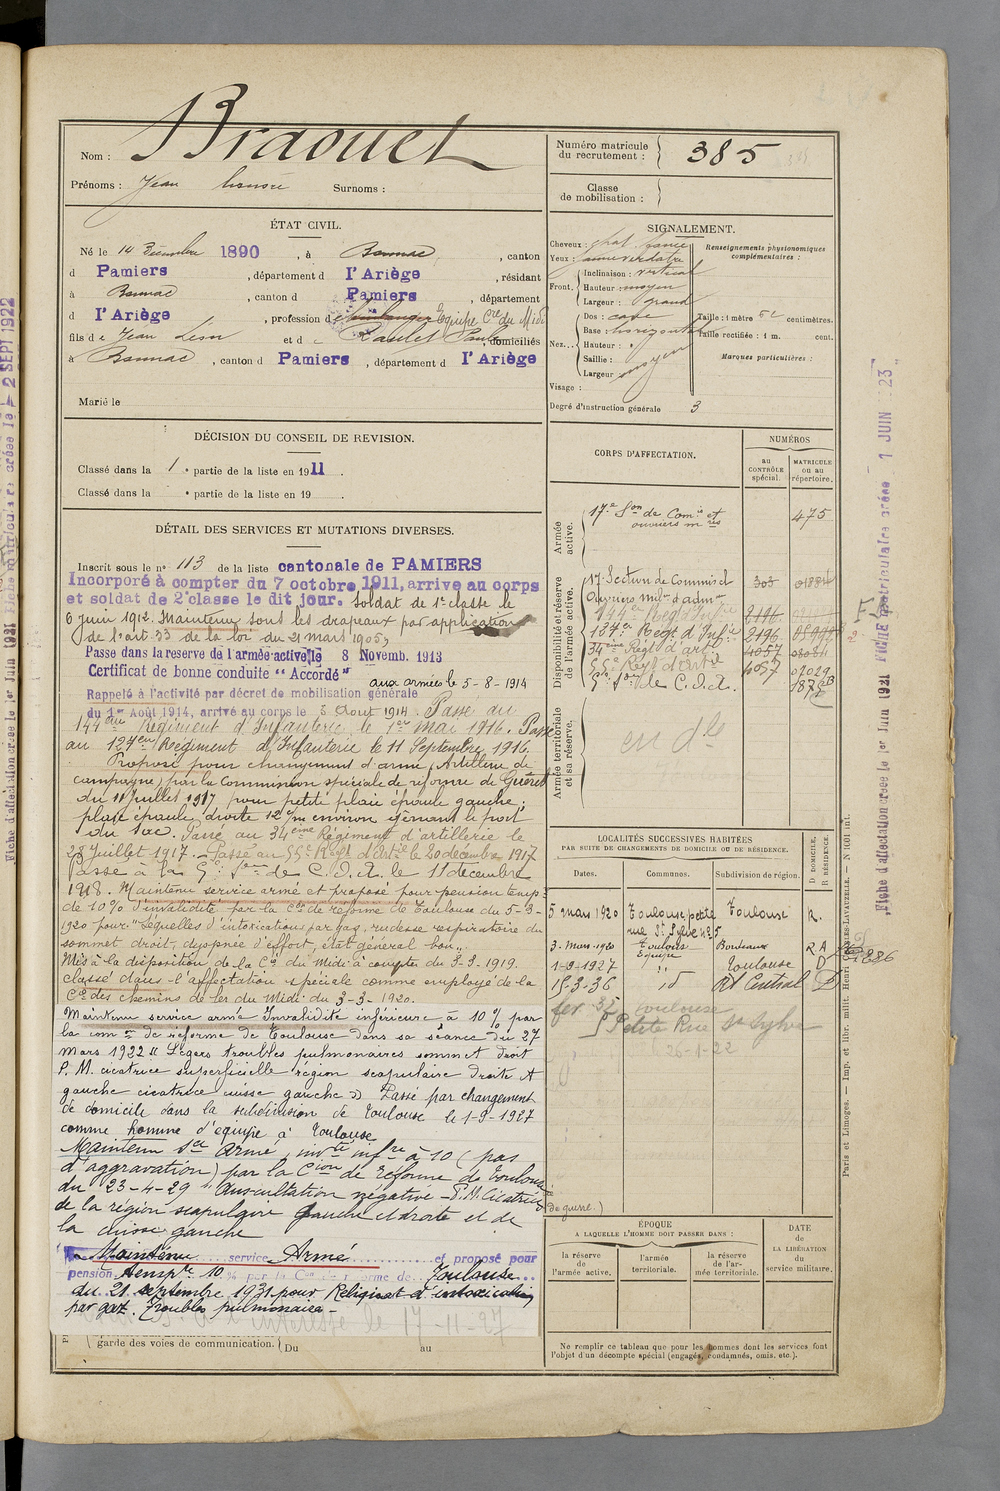 Nom : Braouet
Prénoms : Jean Surnoms :
ÉTAT CIVIL.
Né le 14 Décembre 1890, à Bonnac, canton
d Pamiers, département d l'Ariège, résidant
à Bonnac, canton d Pamiers, département
d l'Ariège, profession d boulanger Equipe Cie du Midi
fils de Jean Léon et de Paule, domiciliés
à Bonnac, canton d Pamiers, département d l'Ariège
Marié le
DÉCISION DU CONSEIL DE REVISION.
Classé dans la 1re partie de la liste en 1911.
Classé dans la e partie de la liste en 19
DÉTAIL DES SERVICES ET MUTATIONS DIVERSES.
Inscrit sous le n° 113 de la liste cantonale de PAMIERS
Incorporé à compter du 7 octobre 1911, arrive au corps
et soldat de 2e classe le dit jour. Soldat de 1re classe le
6 juin 1912. Maintenu sous les drapeaux par application
de l'art. 33 de la loi du 21 mars 1905
Passe dans la reserve de l'armée active le 8 Novemb. 1913
Certificat de bonne conduite "Accordé"
aux armées le 5-8-1914
Rappelé à l'activité par décret de mobilisation générale
du 1er Août 1914, arrivé au corps le 3 Août 1914. Passé au
144ème Régiment d'Infanterie le 1er Mai 1916. Passé
au 127ème Régiment d'Infanterie le 11 Septembre 1916.
Proposé pour changement d'arme, Artillerie de
campagne, par la Commission spéciale de réforme de Guéret
du 11 juillet 1917 pour petite plaie épaule gauche;
plaie épaule droite 12 c/m environ gênant le port
du sac. Passé au 34ème Régiment d'artillerie le
28 Juillet 1917. Passé au 55e Regt d'Artie le 20 décembre 1917
Passé à la 5e Son de C.O.A. le 11 décembre
1918. Maintenu service armé et proposé pour pension temp.
de 10% d'invalidité par la Con de réforme de Toulouse du 5-3-
1920 pour "Séquelles d'intoxication par gaz, rudesse respiratoire du
sommet droit, dyspnée d'effort, état général bon".
Mis à la disposition de la Cie du Midi à compter du 3-3-1919.
Classé dans l'affectation spéciale comme employé de la
Cie des chemins de fer du Midi du 3-3-1920.
Maintenu service armé Invalidité inférieure à 10% par
la com on de réforme de Toulouse dans sa séance du 27
mars 1922 "Légers troubles pulmonaires sommet droit
P. M. cicatrice superficielle région scapulaire droite et
gauche cicatrice cuisse gauche" Passé par changement
de domicile dans la subdivision de Toulouse le 1-9-1927
comme homme d'équipe à Toulouse
Maintenu sce armé, invté infre à 10 (pas
d'aggravation) par la Cion de réforme de Toulouse
du 23-4-29 "Auscultation négative - P.M. Cicatrices
de la région scapulaire gauche et droite et de
la cuisse gauche (de guerre.)
Maintenu service Armé et proposé pour
pension tempre 10 % par la Con de réforme de Toulouse
du 21 septembre 1931 pour Reliquat d'intoxication
par gaz. Troubles pulmonaires -
l'intéressé le 17-11-27
garde des voies de communication. Du au
Numéro matricule du recrutement : 385
Classe de mobilisation :
SIGNALEMENT.
Cheveux : chat. foncé
Yeux : jaune verdatre
Front. Inclinaison : vertical
Hauteur : moyen
Largeur : grand
Nez. Dos : cave
Base : horizontal
Hauteur : "
Saillie :
Largeur moyen
Visage :
Degré d'instruction générale 3
Renseignements physionomiques complémentaires :
Taille : 1 mètre centimètres.
Taille rectifiée : 1 m. cent.
Marques particulières :
CORPS D'AFFECTATION.
NUMÉROS
AU CONTRÔLE spécial.
MATRICULE ou au répertoire.
Armée active.
17e Son de Comis et ouvriers mres 475
Disponibilité et réserve de l'armée active.
17 Section de Commis et 303
Ouvriers milres d'admon
144e Regt d'Infie 2196
127e Regt d'Infie 2196
34ème Régt d'artie 4057
55e Régt d'Artie 4057 07029
5e Son de C.O.A.
Armée territoriale et sa réserve.
en dle
LOCALITÉS SUCCESSIVES HABITÉES
PAR SUITE DE CHANGEMENTS DE DOMICILE OU DE RÉSIDENCE.
Dates. Communes. Subdivision de région. D DOMICILE. R RÉSIDENCE.
5 mars 1920 Toulouse, petite rue St Sylve n° 5 Toulouse R.
3. Mars. 1920 Toulouse Equipe Bordeaux R A
1-9-1927 id Toulouse D
15-3-36 id Rt Central D
fev 35 Toulouse
5 Petite Rue St Sylve
26-1-22
ÉPOQUE
A LAQUELLE L'HOMME DOIT PASSER DANS :
la réserve de l'armée active.
l'armée territoriale.
la réserve de l'armée territoriale.
DATE DE LA LIBÉRATION du service militaire.
Ne remplir ce tableau que pour les hommes dont les services font
l'objet d'un décompte spécial (engagés, condamnés, omis, etc.).
Paris et Limoges. — Imp. et libr. milit. Henri CHARLES-LAVAUZELLE. — N 1601 int.
Fiche d'affectation créée le 1er Juin 1921 Fiche matriculaire créée le 1 JUIN 23
Fiche d'affectation créée le 1er Juin 1921 Fiche matriculaire créée le 2 SEPT 1922